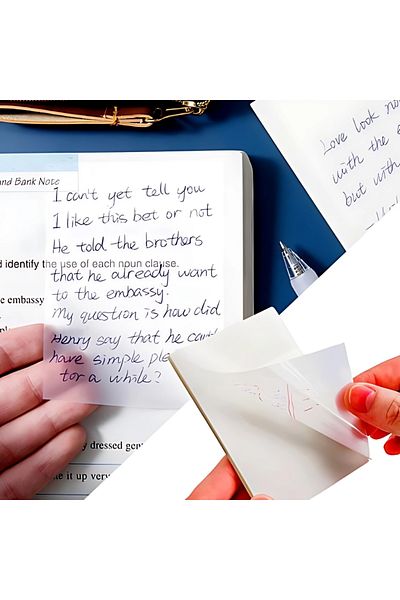 and Bank Note
I can't yet tell you
I like this bet or not
He told the brothers
d identify the use of each noun clause.
that he already want
e embassy
to the embassy.
My question is how did
Henry say that he can't
have simple ple
for a while?
y dressed gen
e it up very
Love look no
with the e
but with